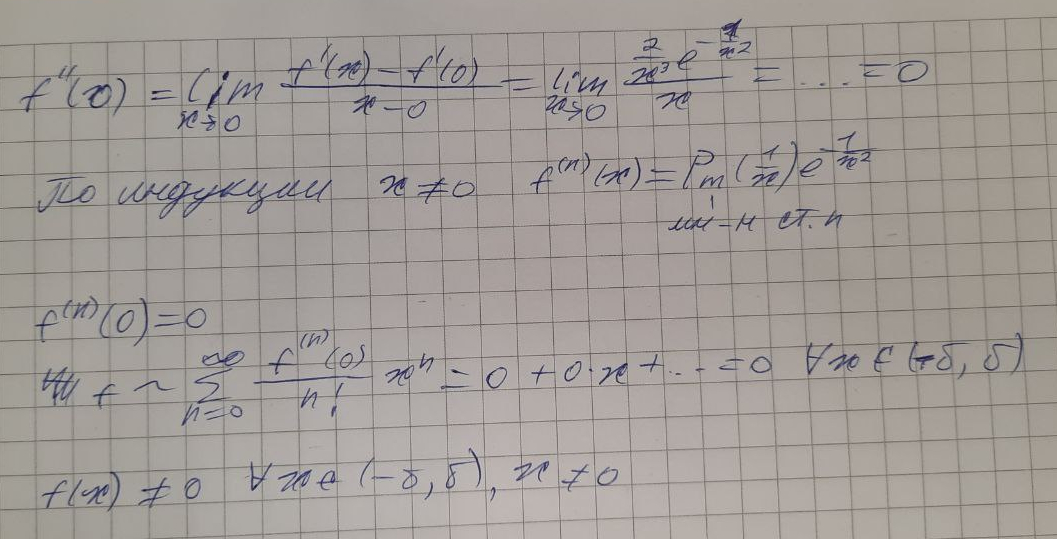 f''(0) = lim_{x→0} \frac{f'(x) - f'(0)}{x - 0} = lim_{x→0} \frac{\frac{2}{x^3} e^{-\frac{1}{x^2}}}{x} = ... = 0
По индукции x ≠ 0 f^{(n)}(x) = P_m(\frac{1}{x}) e^{-\frac{1}{x^2}}
мн-н ст. n
f^{(n)}(0) = 0
f ~ \sum_{n=0}^{∞} \frac{f^{(n)}(0)}{n!} x^n = 0 + 0·x + ... = 0 ∀x ∈ (-δ, δ)
f(x) ≠ 0 ∀x ∈ (-δ, δ), x ≠ 0